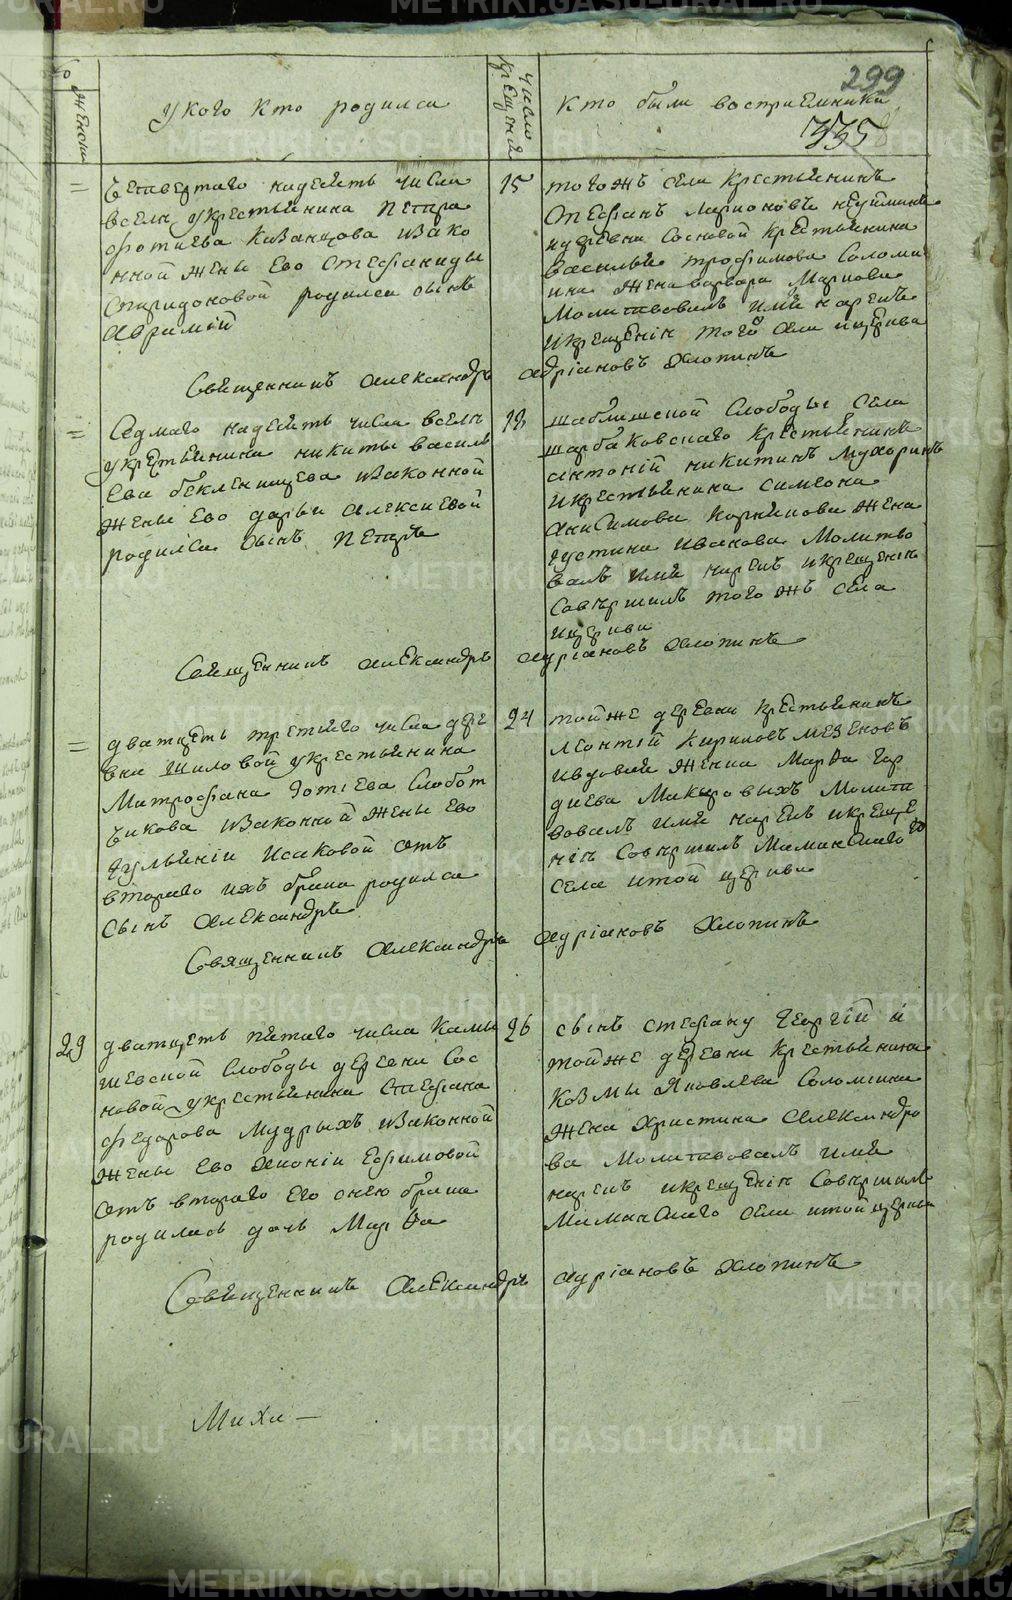 299
335
женска
у кого кто родился
число крещения
кто были восприемники
=
четвертаго надесять числа
вселе укрестьянина петра
фотиева казанцова изако
нной жены ево стефаниды
спиридоновой родился сынъ
аврамій
15
тогожъ села крестьянинъ
стефанъ ларионовъ
идеревни сосновой крестьянина
василья трофимова соломи
ина жена варвара маркова
молитвовалъ имя нарекъ
икрещеніи того села ицеркви
Священникъ александръ адріановъ хлопинъ
=
Седмаго надесять числа вселе
укрестьянина никиты василь
ева бекленищева изаконной
жены ево дарьи алексиевой
родился сынъ петръ
18
слободы села
щарбаковскаго крестьянинъ
антоній никитинъ мухоринъ
икрестьянина симеона
анисимова корнилова жена
устина иванова молитво
валъ имя нарекъ икрещеніе
совершилъ того жъ села
ицеркви
Священникъ александръ адріановъ хлопинъ
=
дватцеть третьяго числа дере
вни шиловой укрестьянина
митрофана фотіева слобот
чикова изаконной жены ево
ульяніи исаковой отъ
втораго ихъ брака родился
сынъ александръ
24
тойже деревни крестьянинъ
леонтій кириловъ мезеновъ
ивдовая женка марфа гор
диева молитв
вовалъ имя нарекъ икреще
ніе совершилъ маминскаго
села итой церкви
Священникъ александръ адріановъ хлопинъ
29
дватцеть пятаго числа камы
шевской слободы деревни сос
новой укрестьянина стефана
федорова мудрыхъ изаконной
жены ево ефимовой
отъ втораго его снею брака
родилась дочь марфа
26
сынъ стефану георгій и
тойже деревни крестьянина
козмы яковлева соломина
жена христина александро
ва молитвовалъ имя
нарекъ икрещеніе совершилъ
маминскаго села итой церкви
Священникъ александръ адріановъ хлопинъ
METRIKI.GASO-URAL.RU